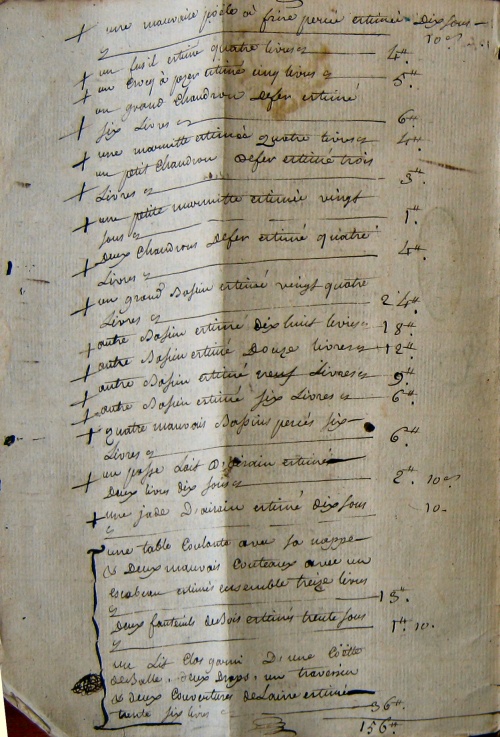 + une mauvaise poële à frire percée estimée dix sous — 10 s
+ un fusil estimé quatre livres — 4 ₶.
+ un Crocq à pezer estimé cinq livres — 5 ₶.
+ un grand Chaudron de fer estimé
six Livres — 6 ₶.
+ une marmitte estimée quatre livres — 4 ₶.
+ un petit Chaudron de fer estimé trois
Livres — 3 ₶.
+ une petite marmitte estimée vingt
sous — 1 ₶.
+ deux Chaudrons de fer estimé quatre
Livres — 4 ₶.
+ un grand Bassin estimé vingt quatre
Livres — 24 ₶.
+ autre Bassin estimé dix huit livres — 18 ₶.
+ autre Bassin estimé Douze livres — 12 ₶.
+ autre Bassin estimé neuf Livres — 9 ₶.
+ autre Bassin estimé six Livres — 6 ₶.
+ quatre mauvais Bassins percés six
Livres — 6 ₶.
+ un passe Lait D'airain estimé
deux livres dix sous — 2 ₶. 10 s
+ une jade D'airain estimé dix sous
— 10.
une table Coulante avec sa nappe
& Deux mauvais Couteaux avec un
Escabeau estimés ensemble treize livres
— 13 ₶.
Deux fauteuils de Bois estimés trente sous
— 1 ₶. 10.
un Lit Clos garni D'une Coëtte
de Balle, deux Draps, un traversin
& deux Couvertures de Laine estimé
trente six livres — 36 ₶.
156 ₶.